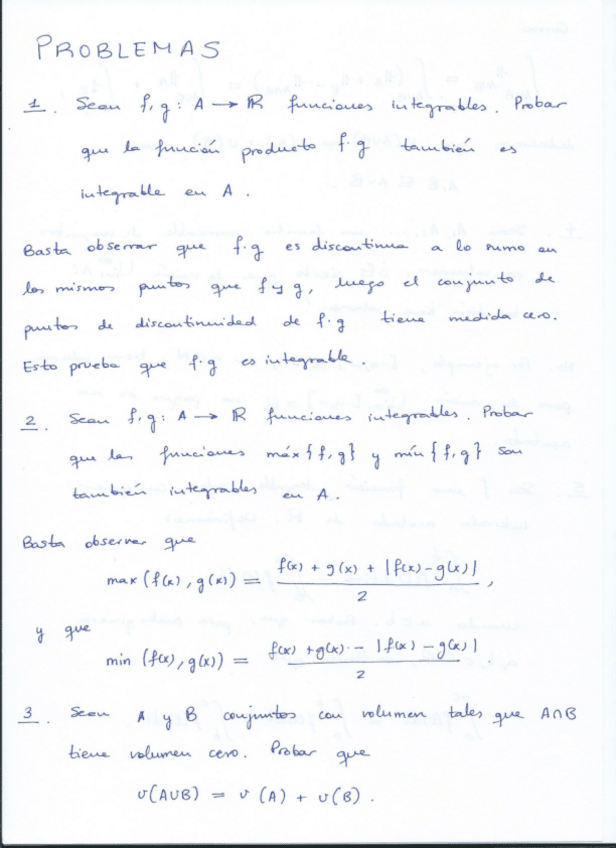 PROBLEMAS
1. Sean f, g: A → ℝ funciones integrables. Probar
que la función producto f·g también es
integrable en A.
Basta observar que f·g es discontinua a lo sumo en
los mismos puntos que f y g, luego el conjunto de
puntos de discontinuidad de f·g tiene medida cero.
Esto prueba que f·g es integrable.
2. Sean f, g: A → ℝ funciones integrables. Probar
que las funciones máx{f, g} y mín{f, g} son
también integrables en A.
Basta observar que
max (f(x), g(x)) = (f(x) + g(x) + |f(x) - g(x)|) / 2,
y que
min (f(x), g(x)) = (f(x) + g(x) - |f(x) - g(x)|) / 2.
3. Sean A y B conjuntos con volumen tales que A∩B
tiene volumen cero. Probar que
v(A∪B) = v(A) + v(B).